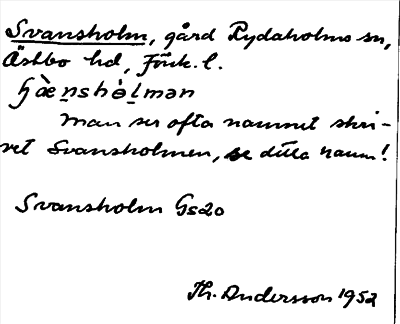 Svansholm, gård Rydaholms sn,
Östbo hd, Jönk. l.
Man ser ofta namnet skri-
vet Svansholmen, se detta namn!
Svansholm Gs20
Th. Andersson 1952